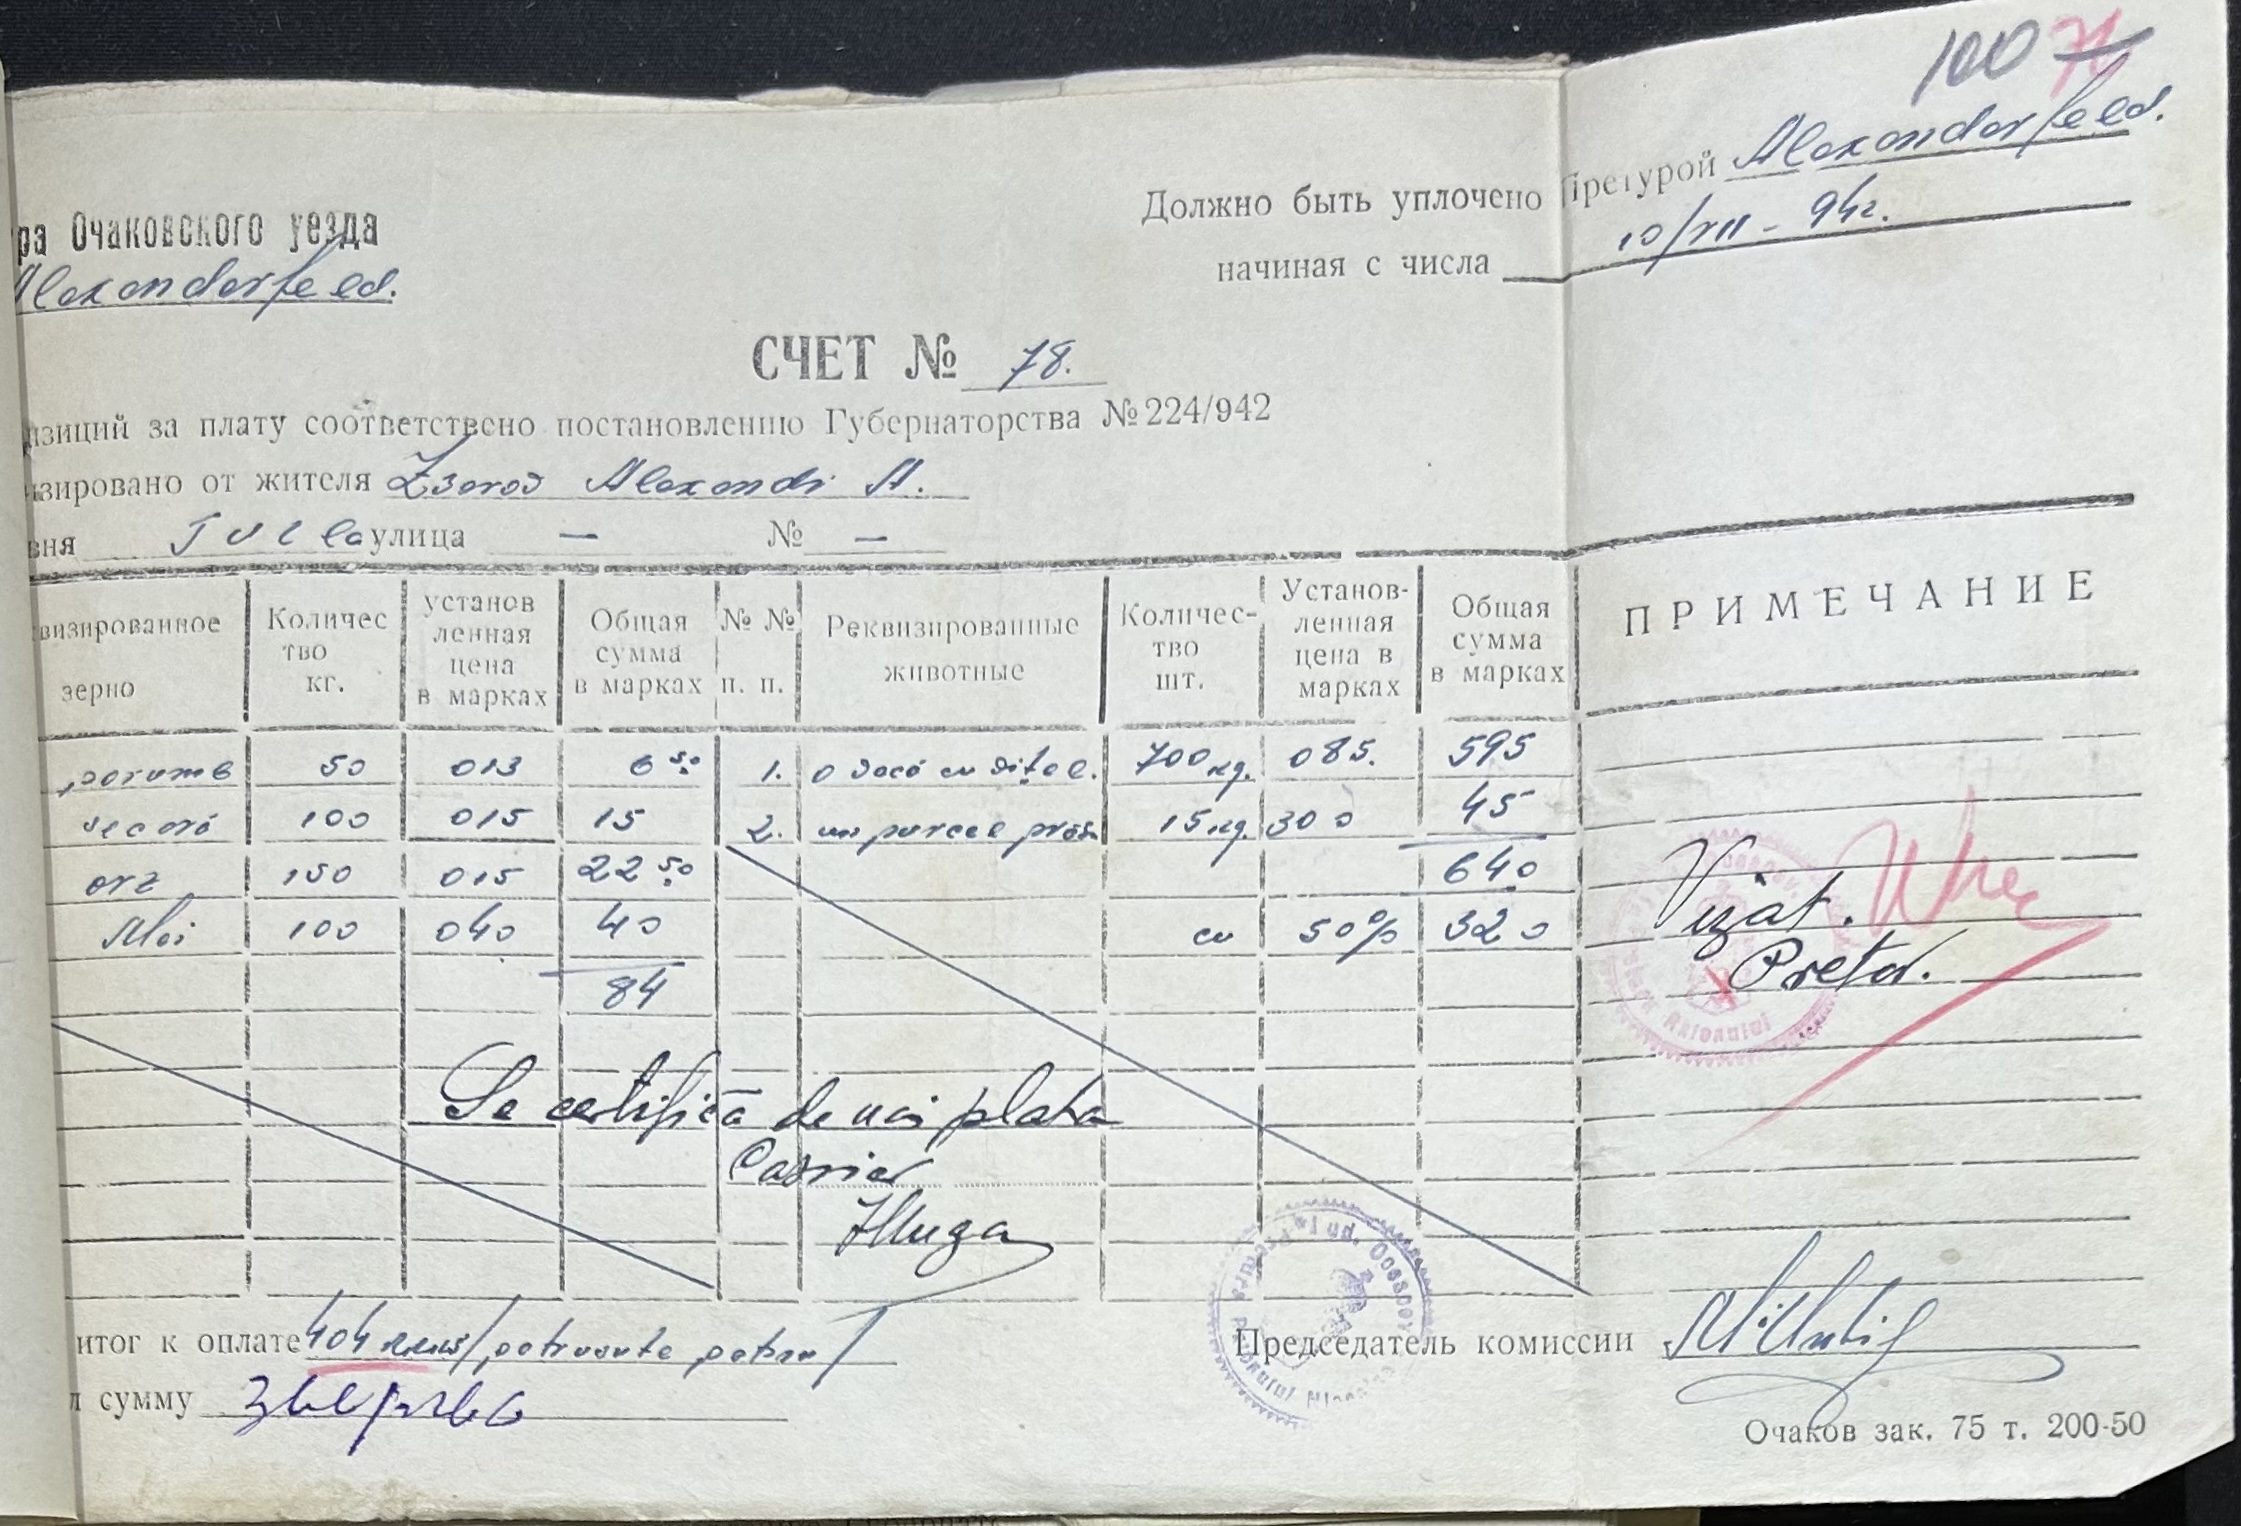 100 71
Должно быть уплочено Претурой Alexanderfeld.
ра Очаковского уезда
начиная с числа 10/VII - 942.
Alexanderfeld.
СЧЕТ № 78.
изиций за плату соответствено постановлению Губернаторства № 224/942
изировано от жителя Alexandr A.
вня улица — № —
визированное зерно Количес тво кг. установ ленная цена в марках Общая сумма в марках № № п. п. Реквизированные животные Количес- тво шт. Установ- ленная цена в марках Общая сумма в марках ПРИМЕЧАНИЕ
porumb 50 013 6 50 1. o vacă cu vițel. 700 kg. 085. 595
secară 100 015 15 2. un purcel prăsilă 15 kg. 300 45
orz 150 015 22 50 640
Mei 100 040 40 cu 50% 320
84
Vizat.
Pretor.
Se certifică de noi plata
Casier
итог к оплате 404 /patrusute patru/
Председатель комиссии
л сумму
Очаков зак. 75 т. 200-50